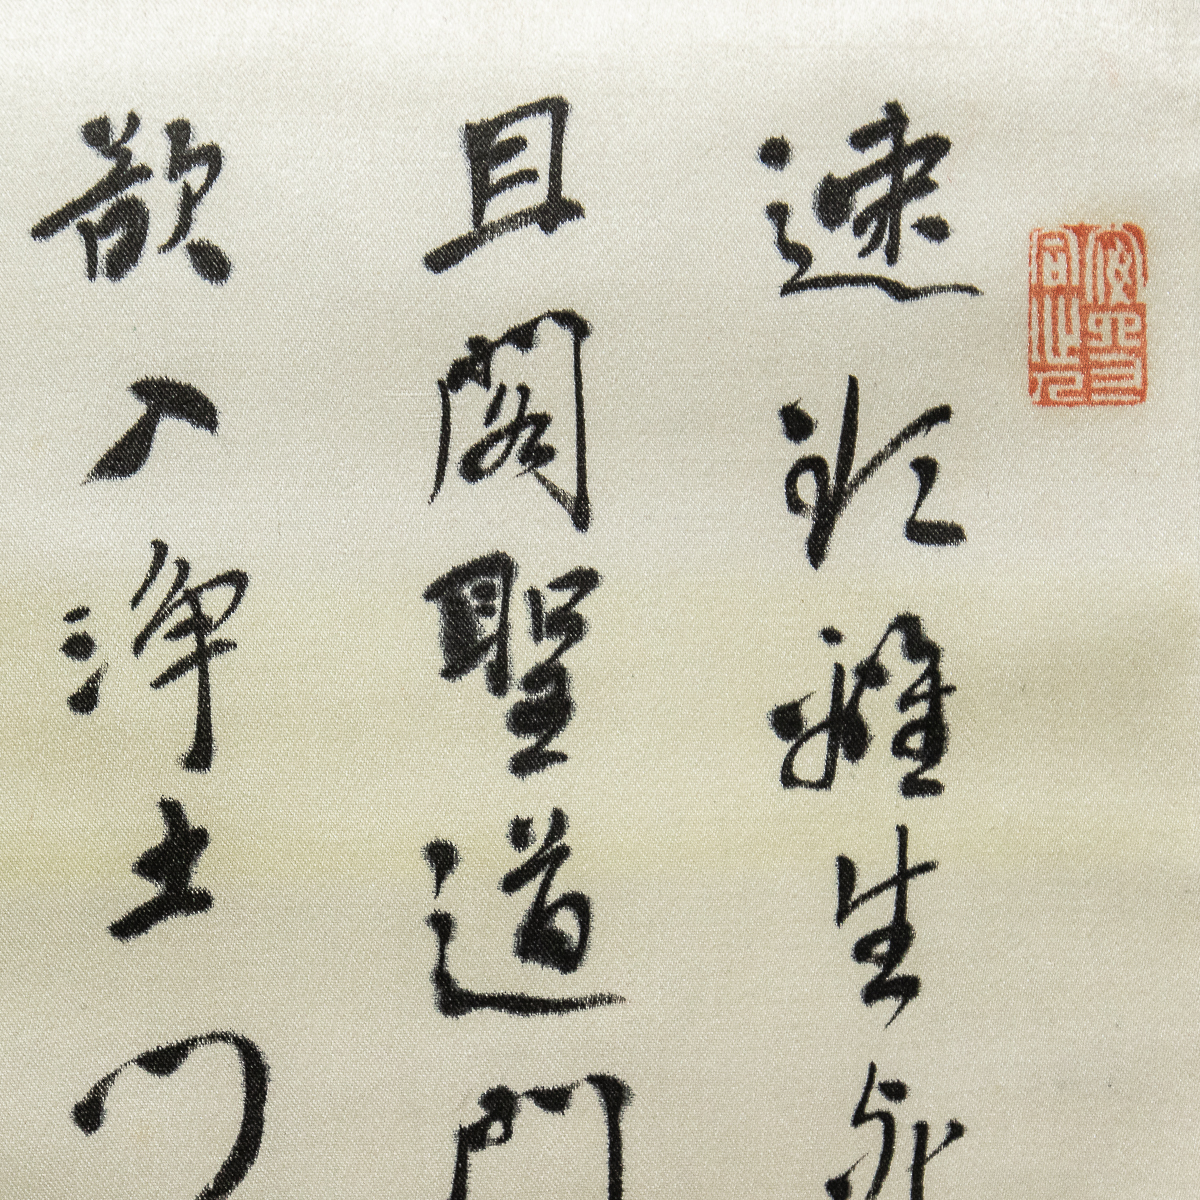 速欲離生死
且閣聖道門
欲入浄土門